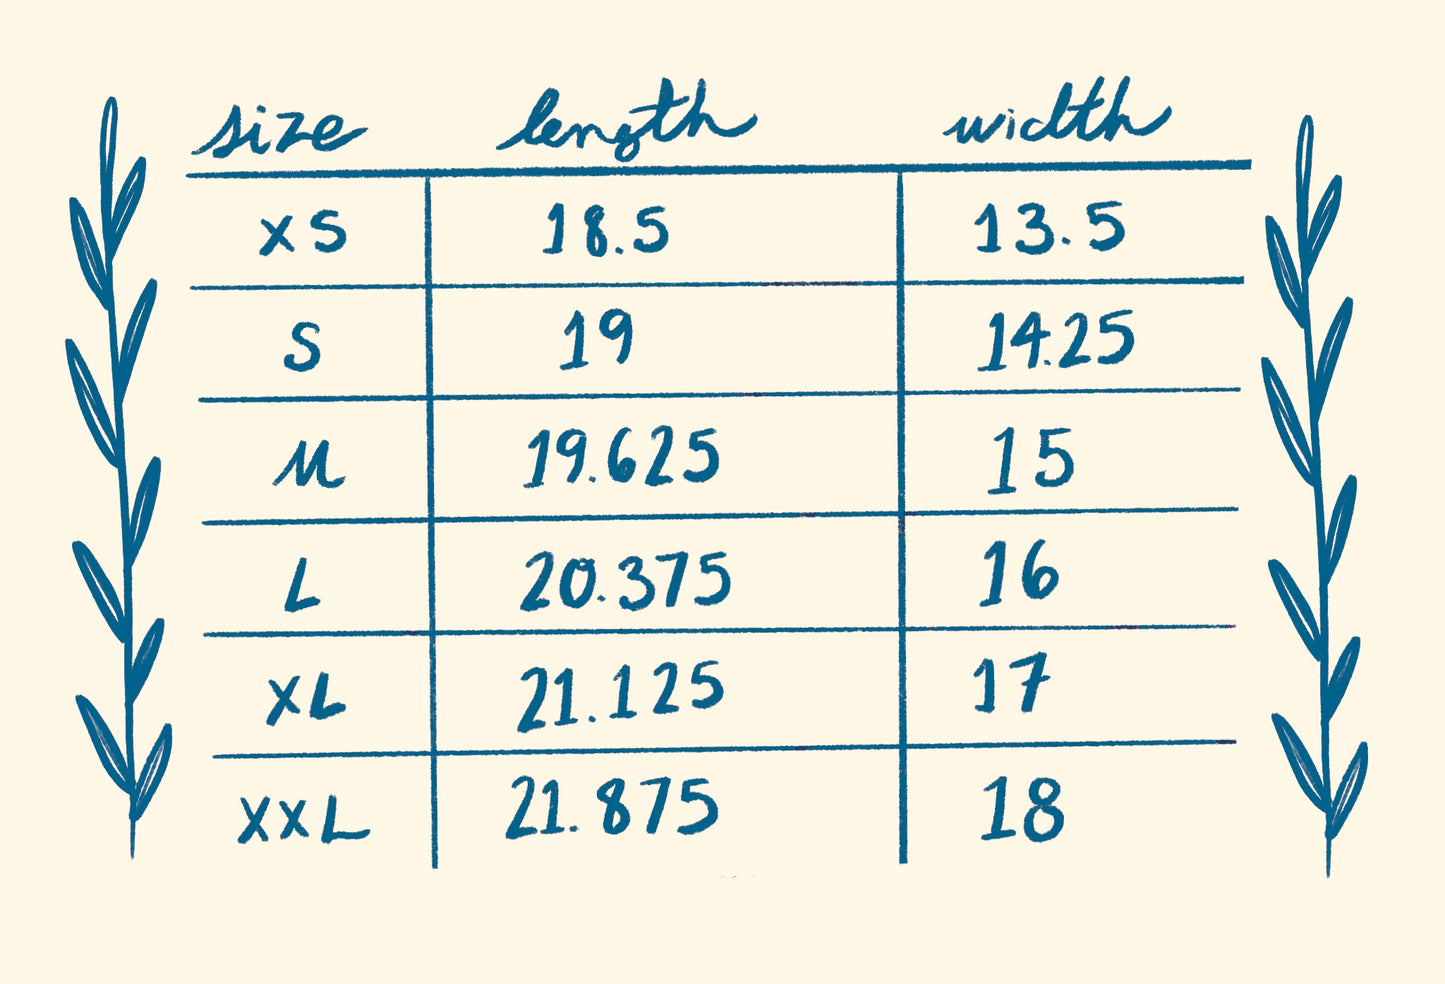 size length width
XS 18.5 13.5
S 19 14.25
M 19.625 15
L 20.375 16
XL 21.125 17
XXL 21.875 18